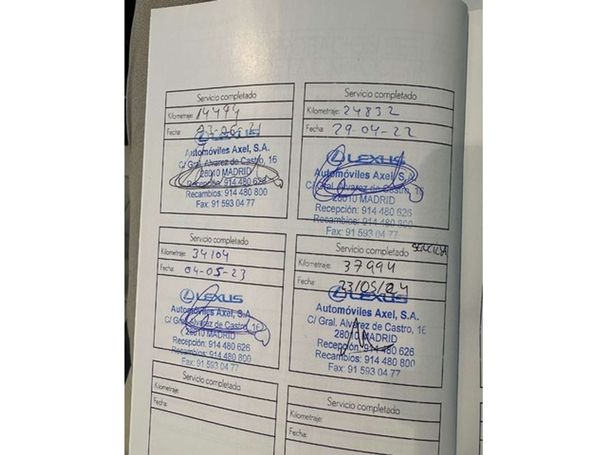 Servicio completado
Kilometraje: 14474
Fecha:
LEXUS
Automóviles Axel, S.A.
C/ Gral. Alvarez de Castro, 16
28010 MADRID
Recepción: 914 480 626
Recambios: 914 480 800
Fax: 91 593 04 77
Servicio completado
Kilometraje: 24832
Fecha: 29-04-22
LEXUS
Automóviles Axel, S.A.
C/ Gral. Alvarez de Castro, 16
28010 MADRID
Recepción: 914 480 626
Recambios: 914 480 800
Fax: 91 593 04 77
Servicio completado
Kilometraje: 34104
Fecha: 04-05-23
LEXUS
Automóviles Axel, S.A.
C/ Gral. Alvarez de Castro, 16
28010 MADRID
Recepción: 914 480 626
Recambios: 914 480 800
Fax: 91 593 04 77
Servicio completado
Kilometraje: 37994
Fecha: 23/05/24
LEXUS
Automóviles Axel, S.A.
C/ Gral. Alvarez de Castro, 16
28010 MADRID
Recepción: 914 480 626
Recambios: 914 480 800
Fax: 91 593 04 77
Servicio completado
Kilometraje:
Fecha:
Servicio completado
Kilometraje:
Fecha: